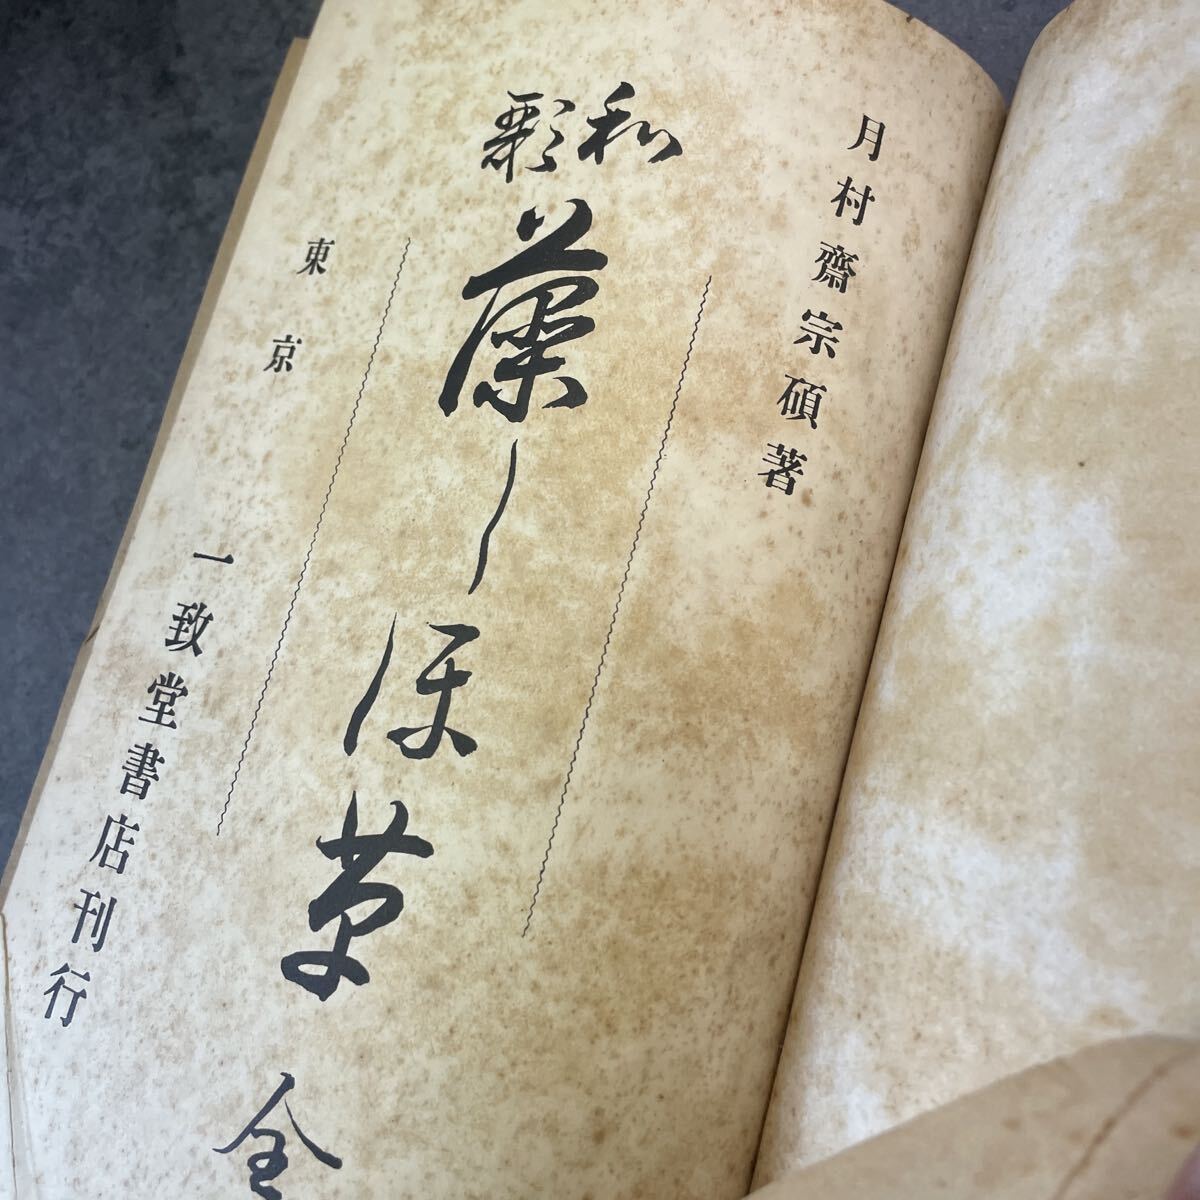 月村齋宗碩著
和歌
藻しほ草 全
東京 一致堂書店刊行